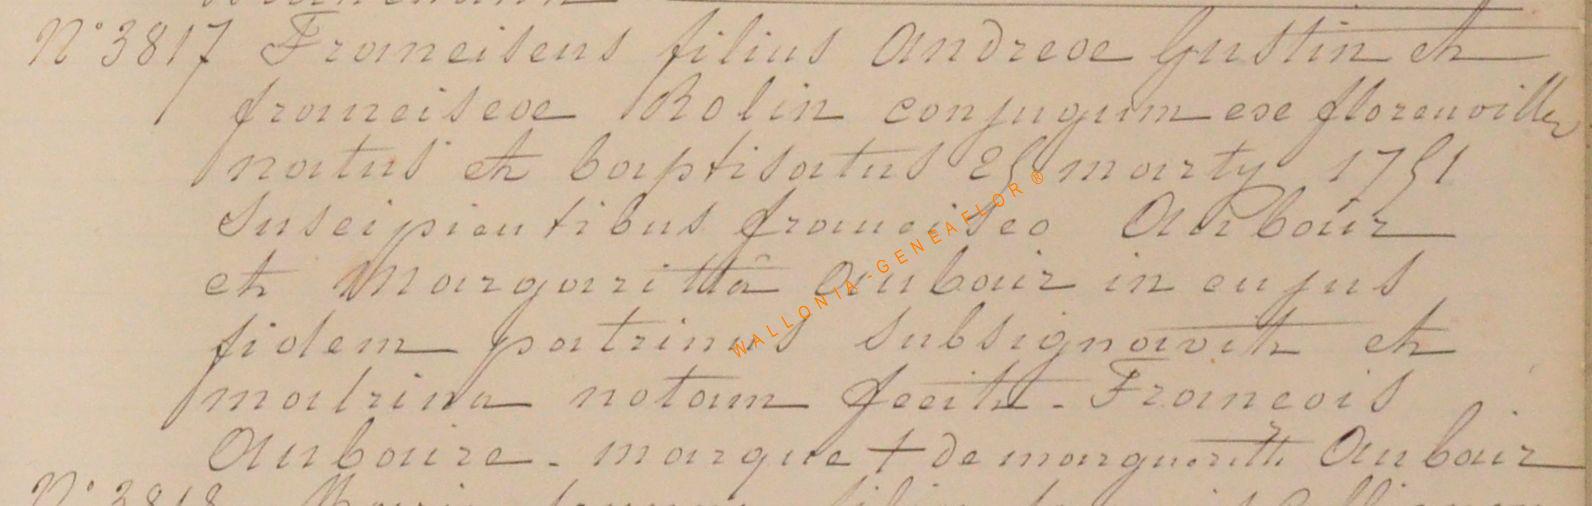 N° 3817 Franciscus filius Andreae Gustin et
franciscae Rolin conjugum ex florenville
natus et baptisatus 25 marty 1751
Suscipientibus francisco Aubair
et Margarittâ Aubair in cujus
fidem patrinus subsignavit et
matrina notam fecit. François
Aubaire. marque + de margueritte Aubair
N° 3818
WALLONIA-GENEAFLOR ®